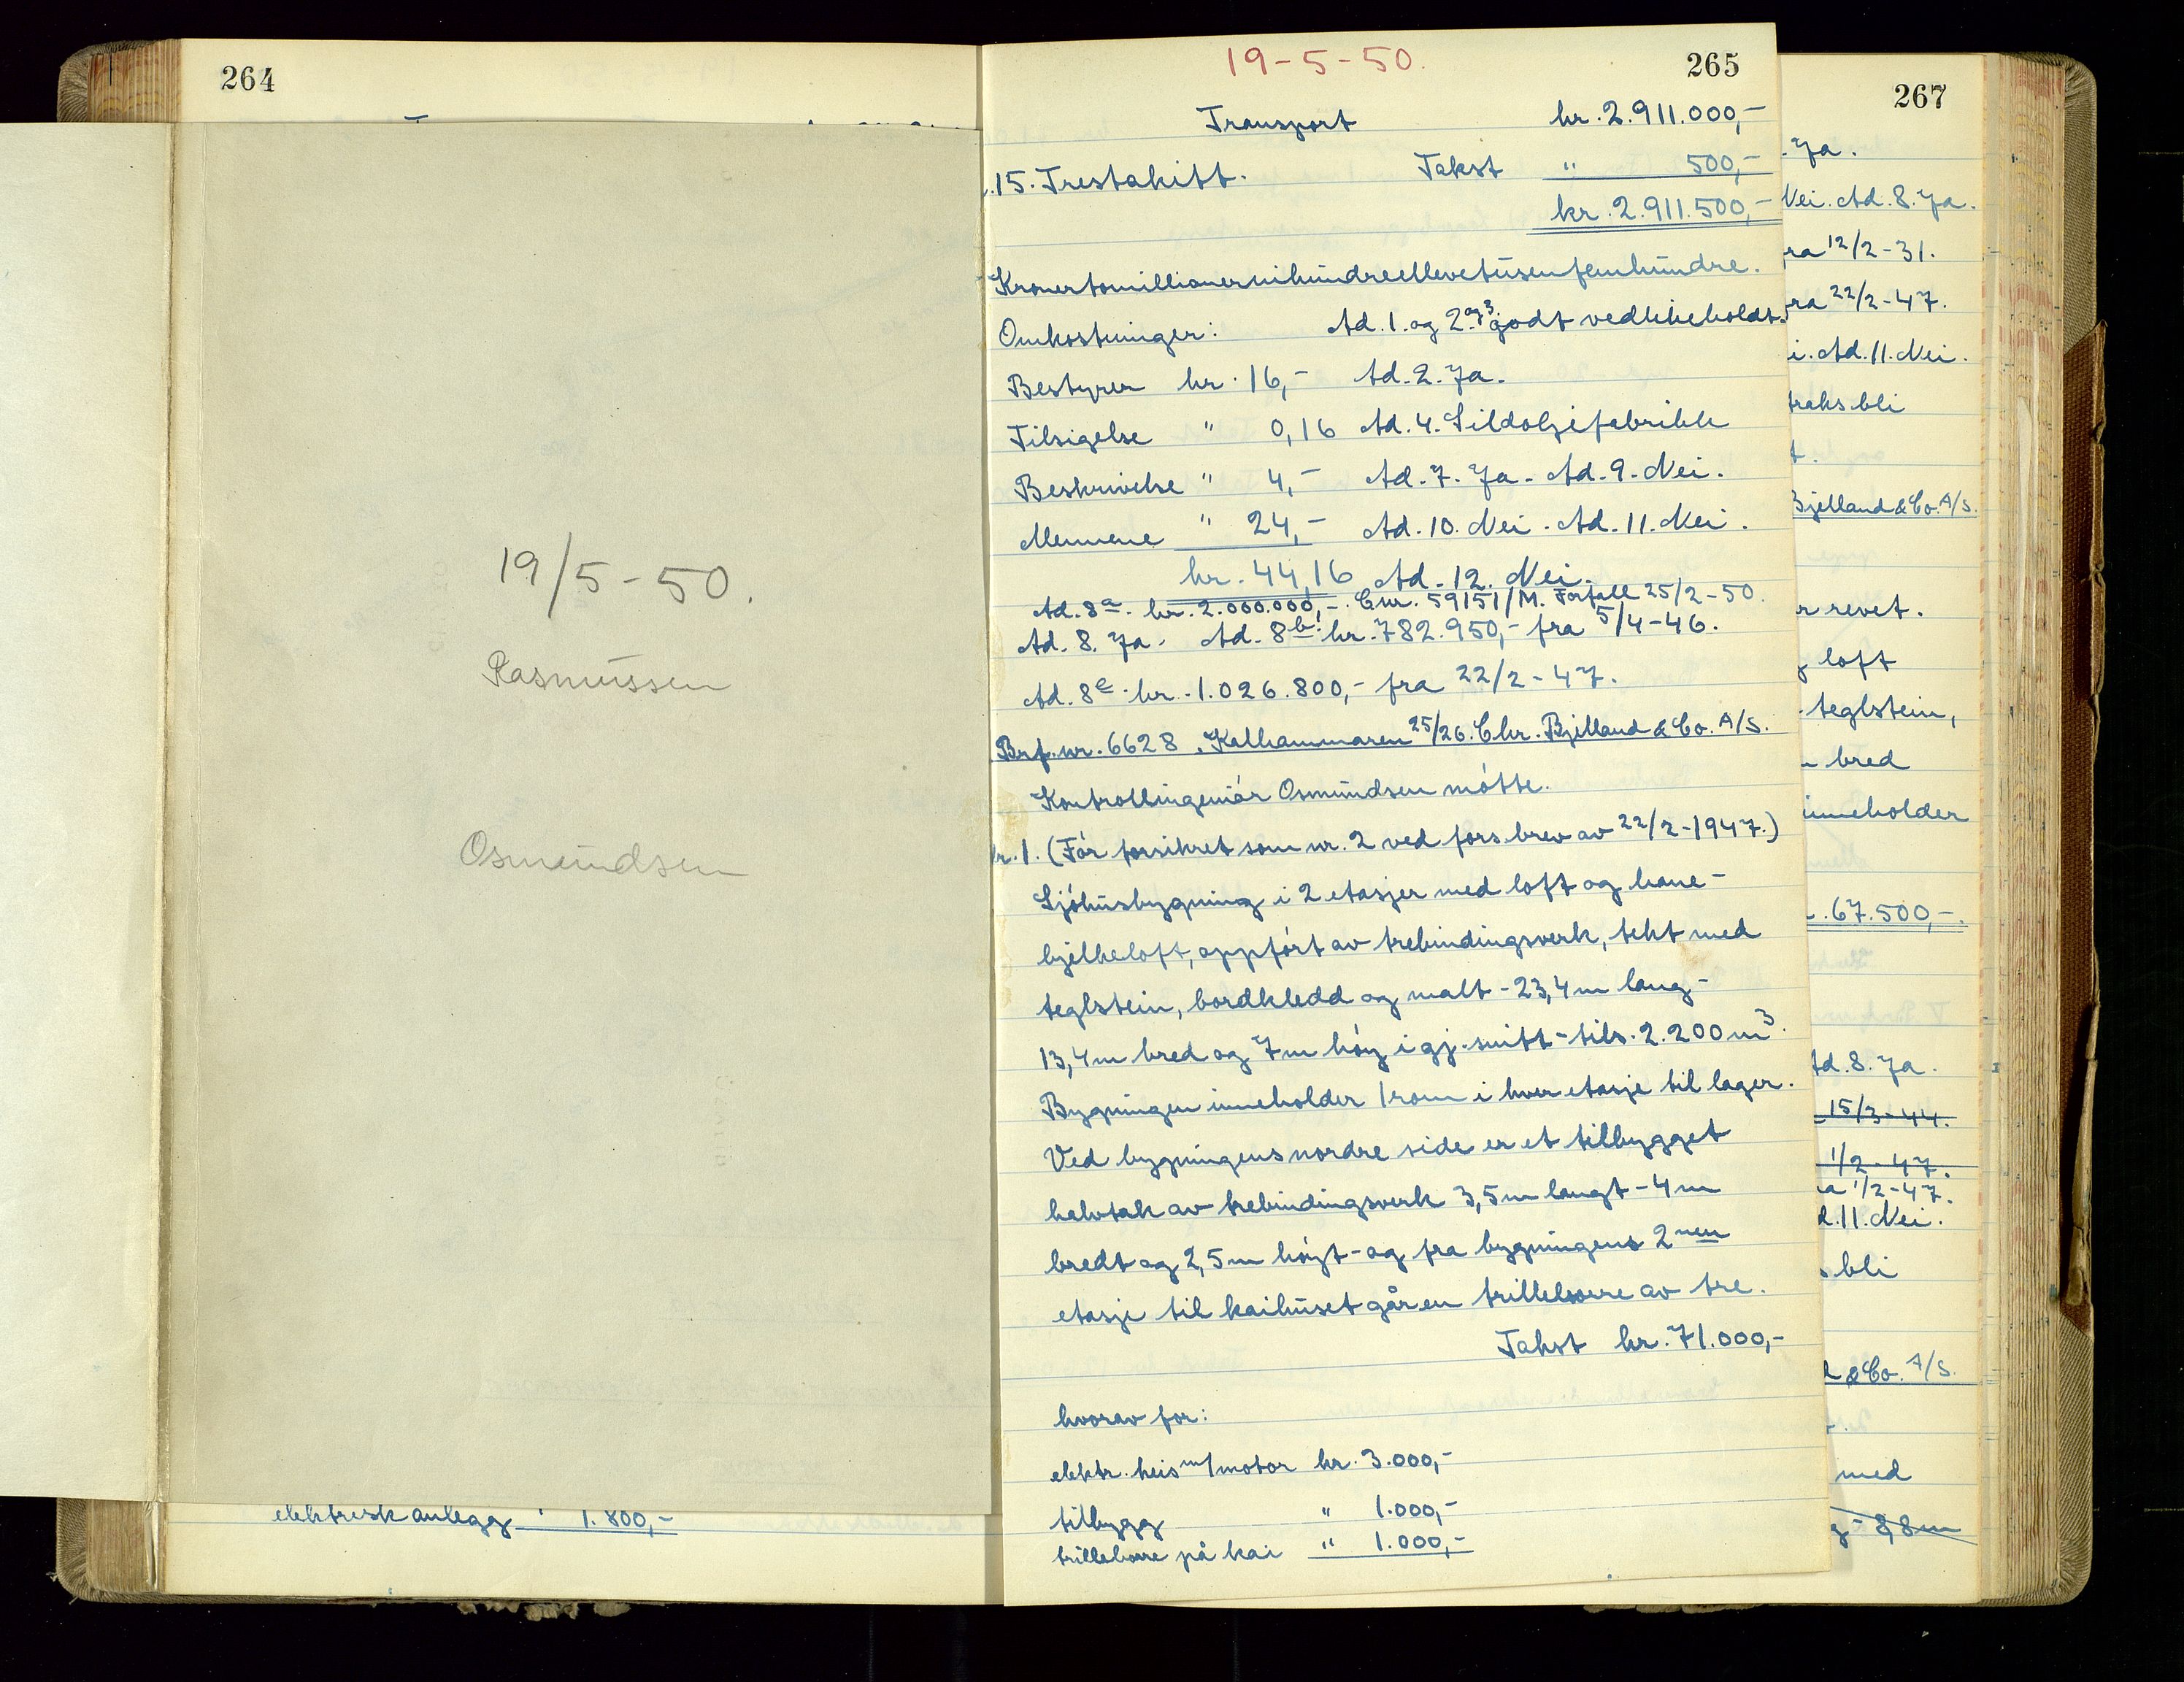 264
19/5-50.
Rasmussen
Osmundsen
elektrisk anlegg " 1.800,-
19-5-50.
265
Transport kr. 2.911.000,-
15. Trestakitt. Takst " 500,-
kr. 2.911.500,-
Kronertomillionernihundreellevetusenfemhundre.
Omkostninger: Ad. 1. og 2 og 3 godt vedlikeholdt.
Bestyrer kr. 16,- Ad. 2. Ja.
Tilsigelse " 0,16 Ad. 4. Sildoljefabrikk
Beskrivelse " 4,- Ad. 7. Ja. Ad. 9. Nei.
Mennene " 24,- Ad. 10. Nei. Ad. 11. Nei.
kr. 44,16 Ad. 12. Nei.
Ad. 8a. kr. 2.000.000,-. Cnr. 59151/M. Forfall 25/2-50.
Ad. 8. Ja. Ad. 8b! kr. 782.950,- fra 5/4-46.
Ad. 8c. kr. 1.026.800,- fra 22/2-47.
Brf. nr. 6628. Kalhammaren 25/26. Chr. Bjelland & Co. A/S.
Kontrollingeniór Osmundsen mótte.
nr. 1. (Fór forsikret som nr. 2 ved fors.brev av 22/2-1947.)
Sjóhusbygning i 2 etasjer med loft og hane-
bjelkeloft, oppfórt av trebindingsverk, tekt med
teglstein, bordkledd og malt - 23,4 m lang -
13,4 m bred og 7 m hóy i gj.snitt - tils. 2.200 m³.
Bygningen inneholder 1 rom i hver etasje til lager.
Ved bygningens nordre side er et tilbygget
halvtak av trebindingsverk 3,5 m langt - 4 m
bredt og 2,5 m hóyt - og fra bygningens 2nen
etasje til kaihuset går en trilleborre av tre.
Takst kr. 71.000,-
hvorav for:
elektr. heis m/motor kr. 3.000,-
tilbygg " 1.000,-
trilleborre på kai " 1.000,-
267
. Ja.
Nei. Ad. 8. Ja.
fra 12/2-31.
fra 22/2-47.
i. Ad. 11. Nei.
traks bli
t.
Bjelland & Co. A/S.
r revet.
g loft
teglstein,
bred
inneholder
. 67.500,-.
Ad. 8. Ja.
15/3-44.
1/2-47.
a 1/2-47.
d. 11. Nei.
s bli
d & Co. A/S.
med
g - 8,8 m